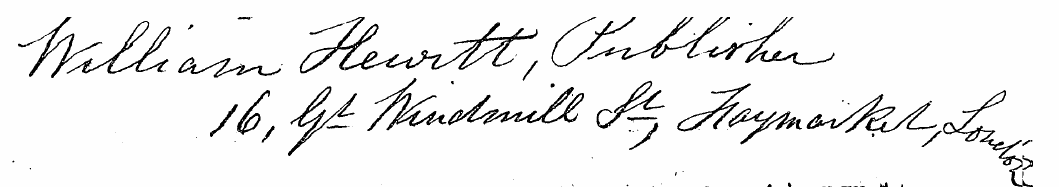 William Hewitt, Publisher
16, Gt Windmill St, Haymarket, London